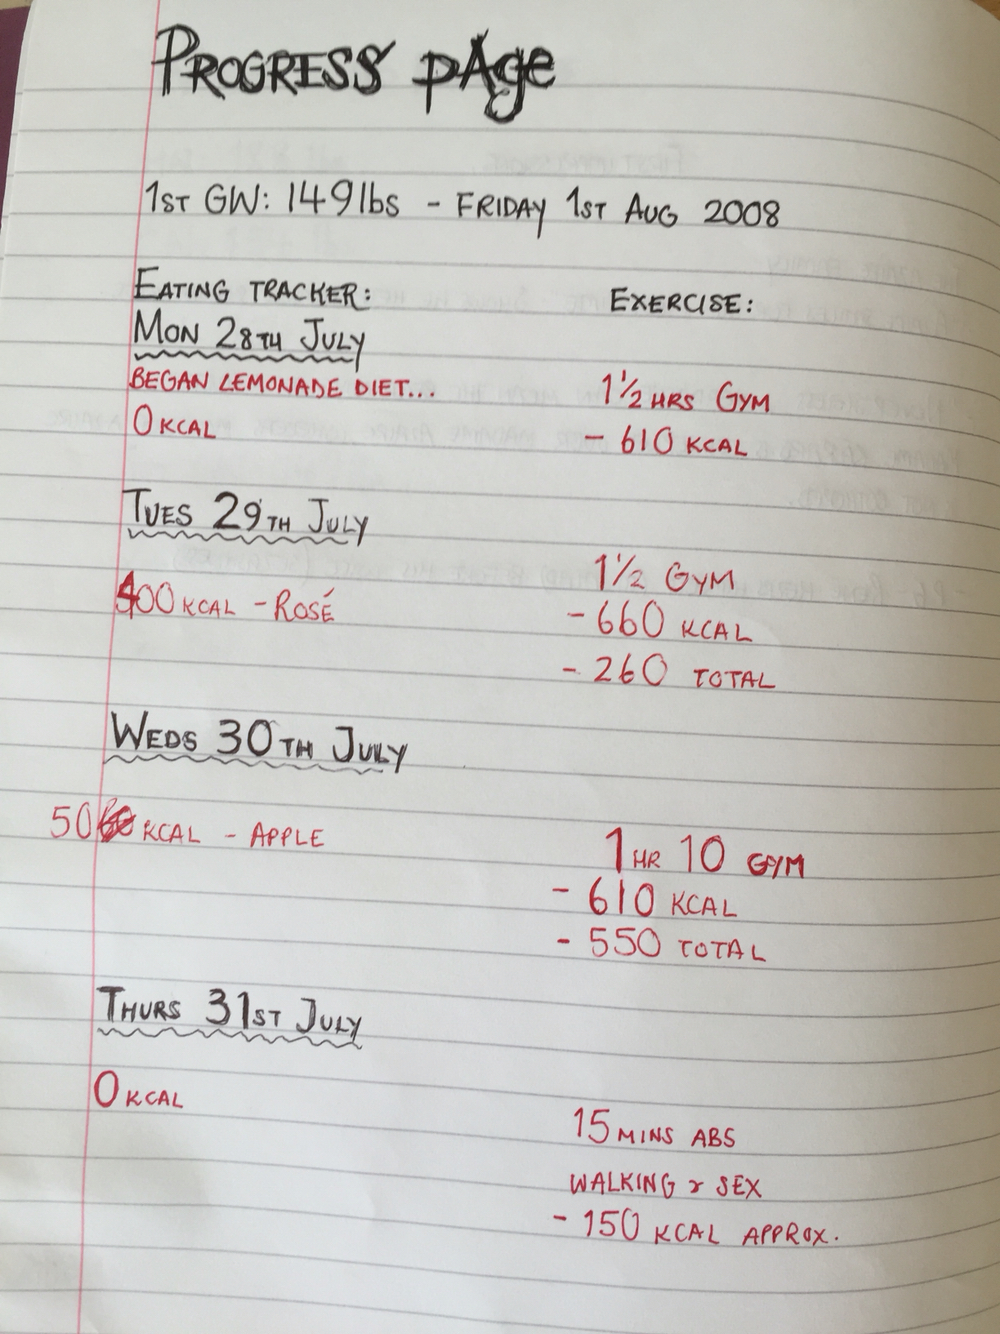 PROGRESS PAge
1ST GW: 149lbs - FRIDAY 1ST AUG 2008
EATING TRACKER:
EXERCISE:
MON 28TH JULY
BEGAN LEMONADE DIET...
1 1/2 HRS GYM
0 KCAL
- 610 KCAL
TUES 29TH JULY
1 1/2 GYM
400 KCAL - ROSÉ
- 660 KCAL
- 260 TOTAL
WEDS 30TH JULY
50 KCAL - APPLE
1 HR 10 GYM
- 610 KCAL
- 550 TOTAL
THURS 31ST JULY
0 KCAL
15 MINS ABS
WALKING & SEX
- 150 KCAL APPROX.